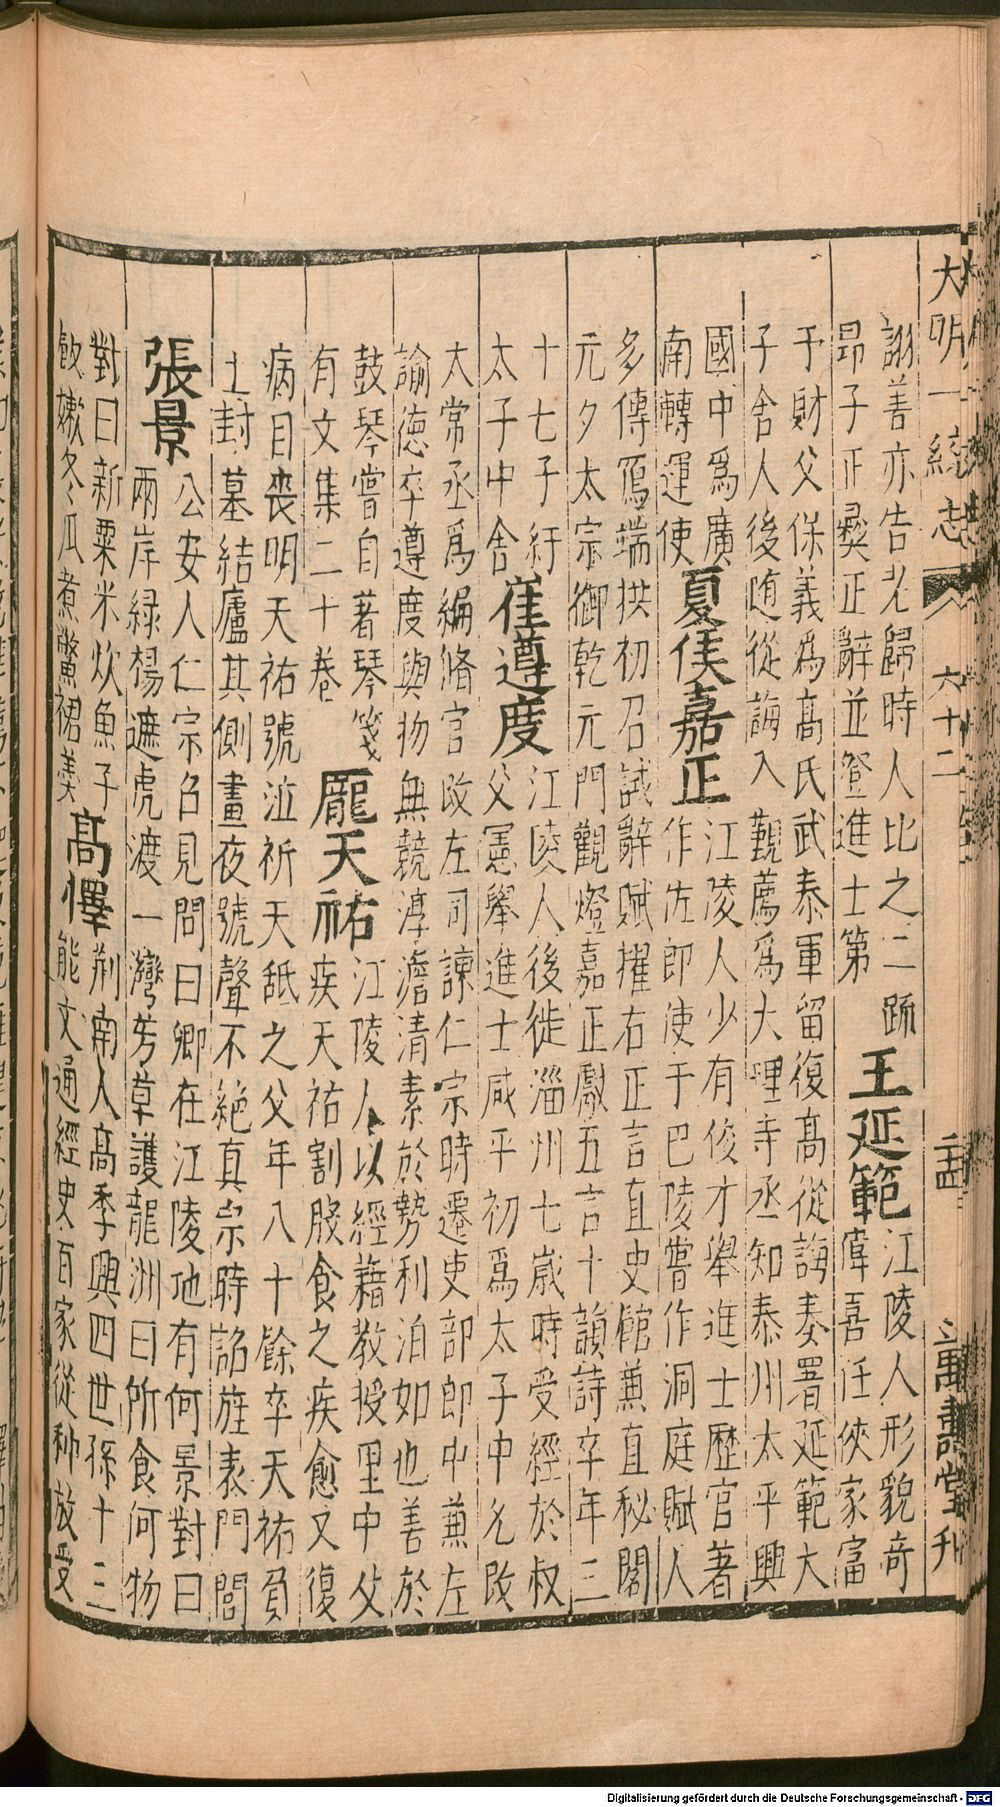 大明一統志 六十二 孟 萬壽堂刋
謝善亦告老歸時人比之二疏
昂子正彛正辭並登進士第
王延範
江陵人形貌奇
偉喜任俠家富
于財父保義爲髙氏武泰軍留復髙從誨奏署延範大
子舍人後随從誨入覲薦爲大理寺丞知泰州太平興
國中爲廣
南轉運使
夏侯嘉正
江陵人少有俊才舉進士歷官著
作佐郎使于巴陵嘗作洞庭賦人
多傳寫端拱初召試辭賦擢右正言直史館兼直秘閣
元夕太宗御乾元門觀燈嘉正獻五言十韻詩卒年三
十七子紆
太子中舍
崔遵度
江陵人後徙淄州七歲時受經於叔
父憲舉進士咸平初爲太子中允改
大常丞爲編脩官改左司諫仁宗時遷吏部郎中兼左
諭德卒遵度與物無競淳澹清素於勢利泊如也善於
鼓琴嘗自著琴箋
有文集二十卷
龐天祐
江陵人以經籍教授里中父
疾天祐割股食之疾愈又復
病目喪明天祐號泣祈天舐之父年八十餘卒天祐負
土封墓結廬其側晝夜號聲不絶真宗時詔旌表門閭
張景
公安人仁宗召見問曰卿在江陵地有何景對曰
兩岸緑楊遮虎渡一灣芳草護龍洲曰所食何物
對曰新粟米炊魚子
飲嫩冬瓜煮鱉裙羹
髙懌
荊南人髙季興四世孫十三
能文通經史百家從种放受
Digitalisierung gefördert durch die Deutsche Forschungsgemeinschaft - DFG